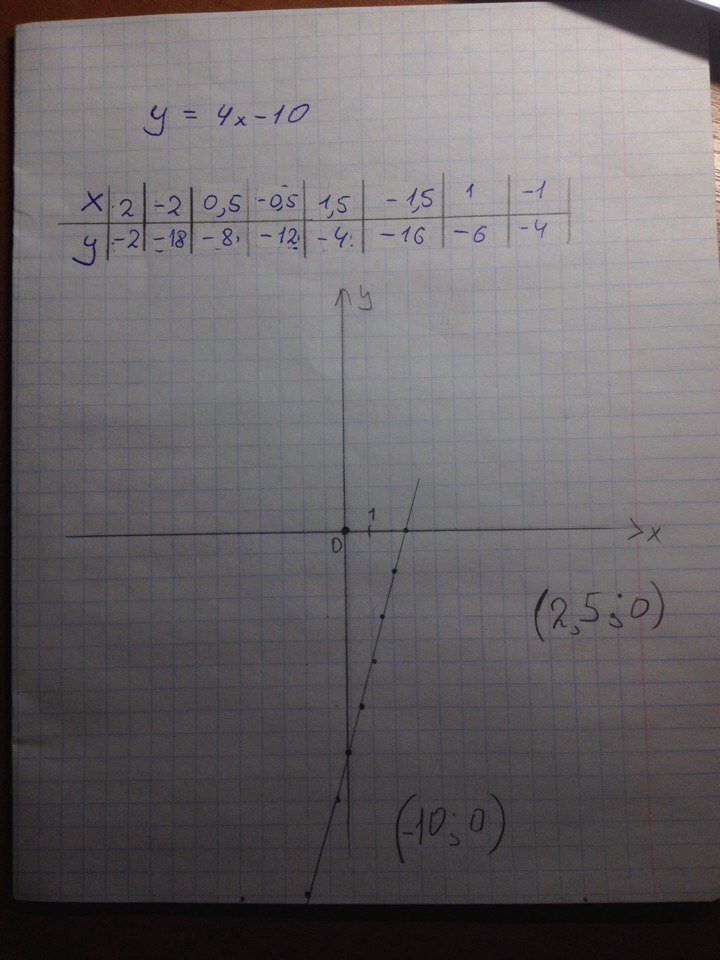 y = 4x-10
x 2 -2 0,5 -0,5 1,5 -1,5 1 -1
y -2 -18 -8 -12 -4 -16 -6 -4
y
1
0 x
(2,5;0)
(-10;0)